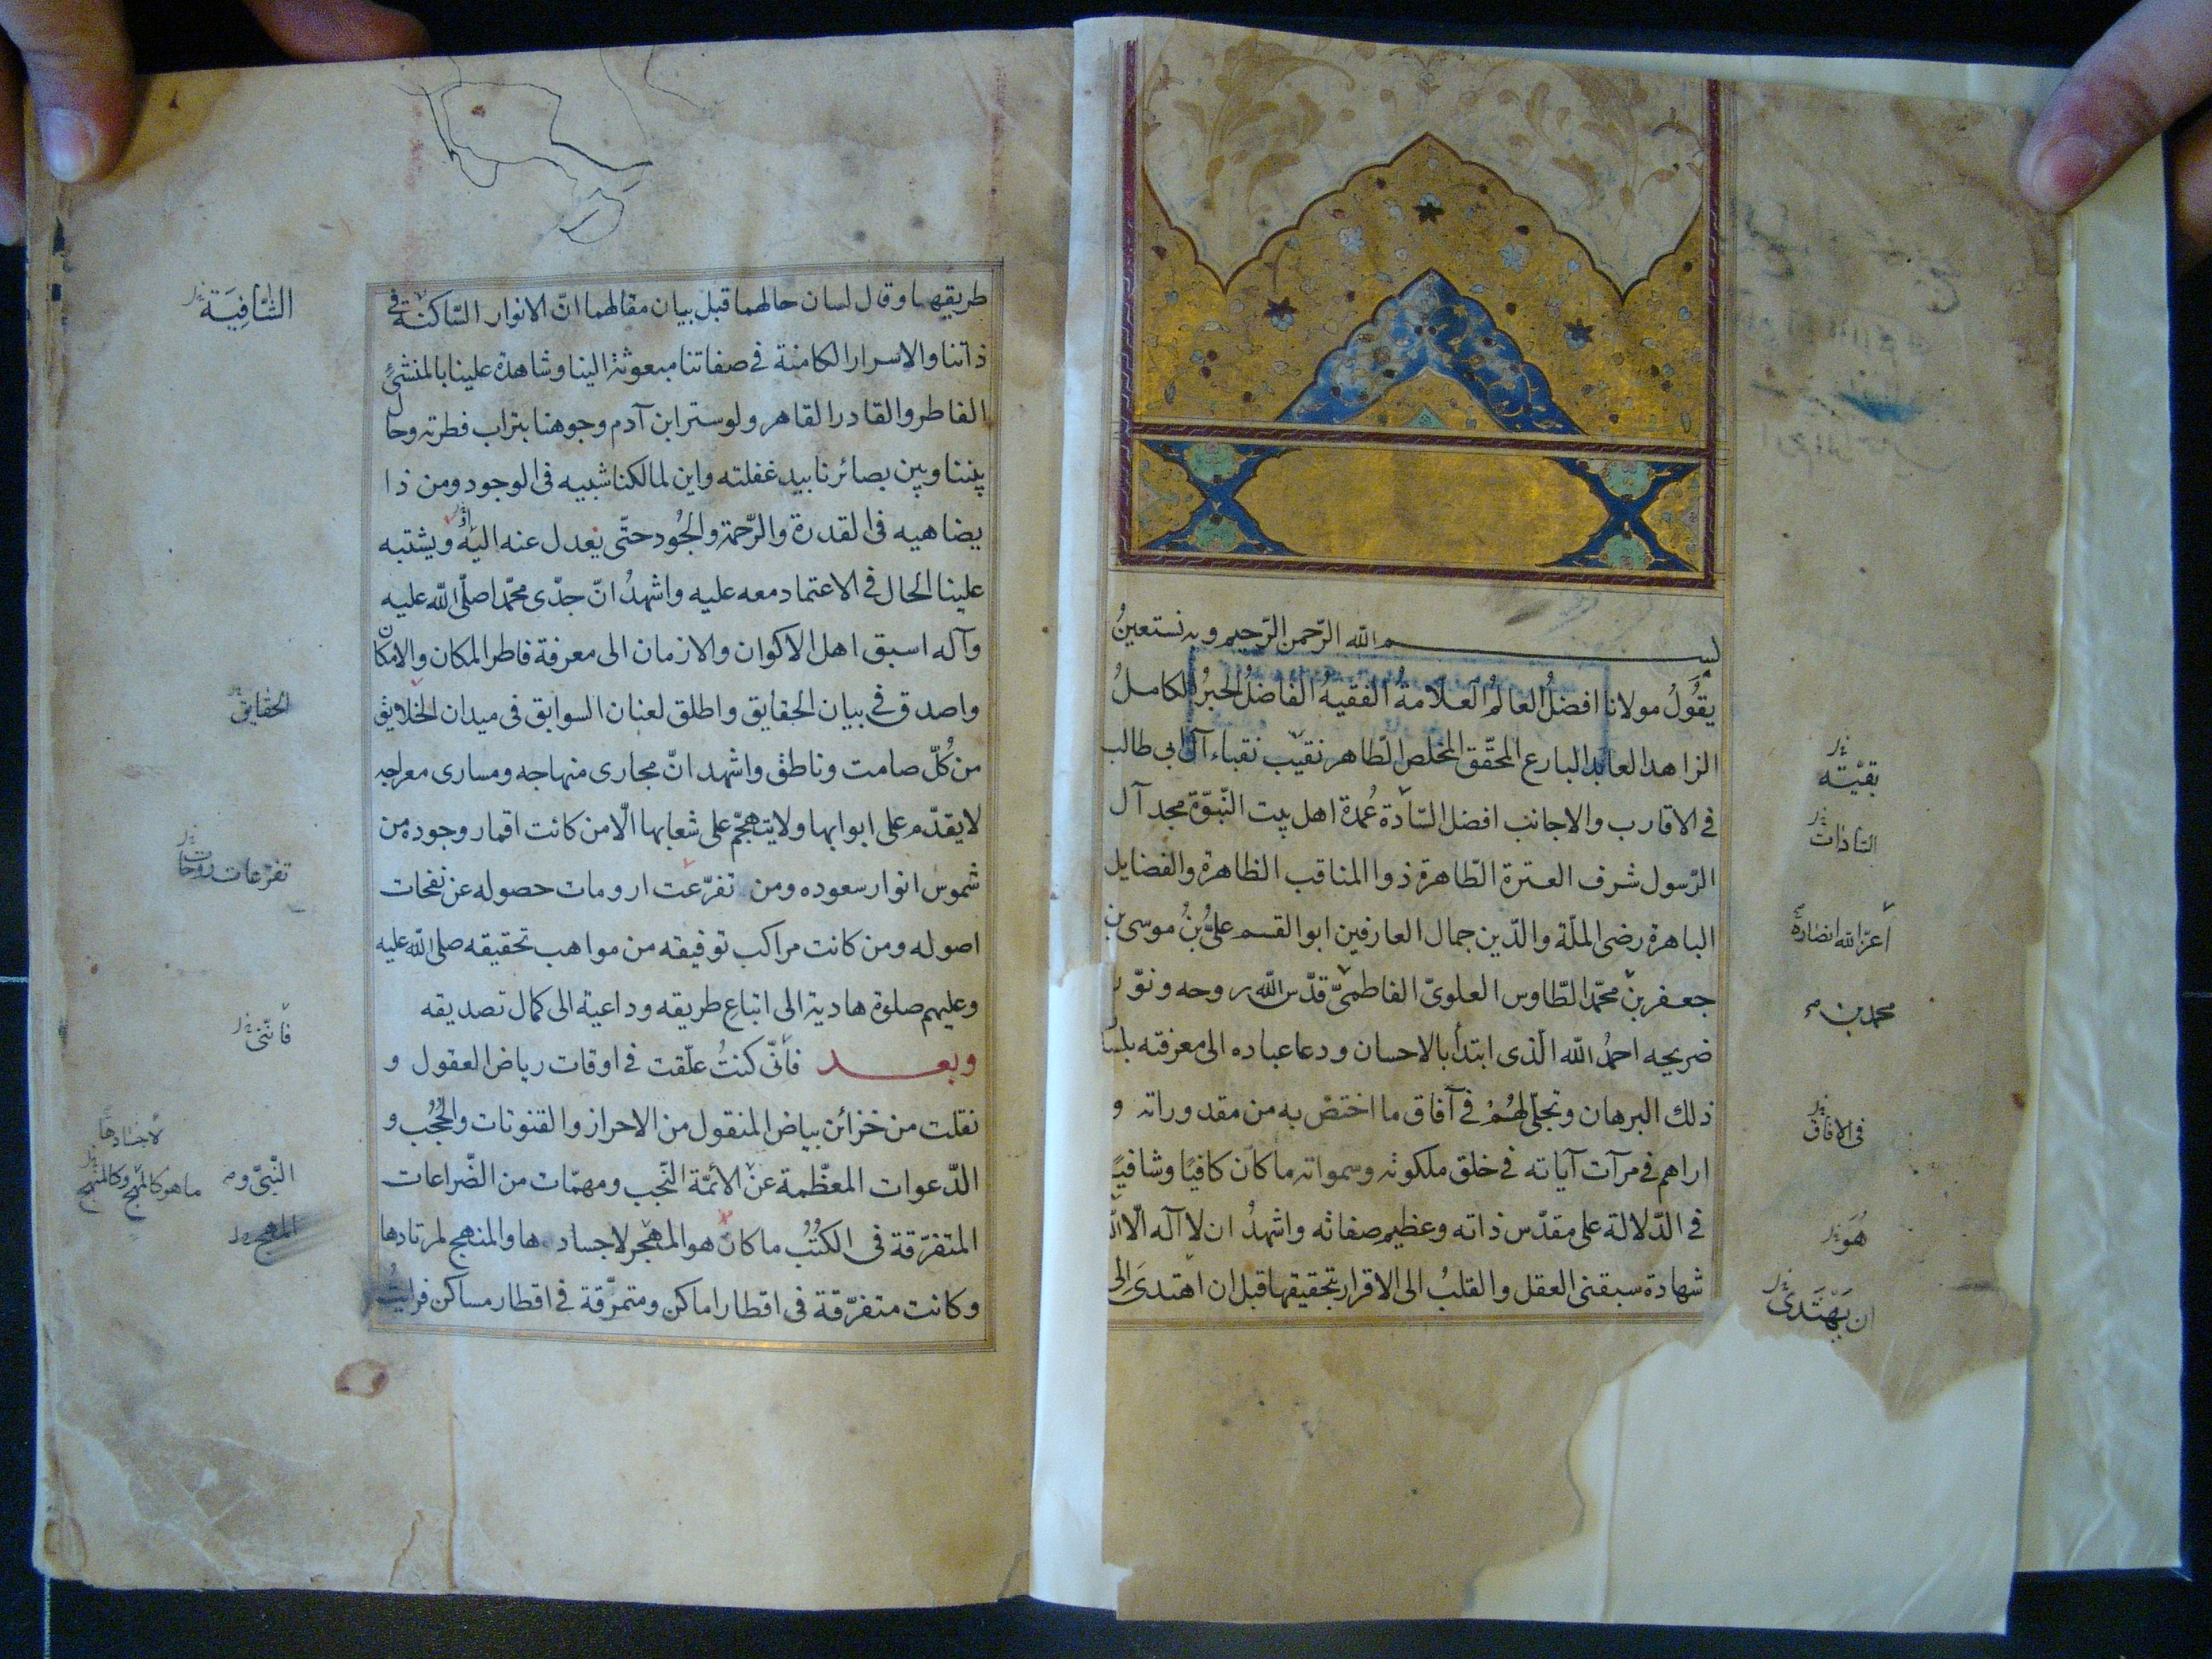 بسم الله الرّحمن الرّحيم وبه نستعينُ
يقُولُ مولانا افضلُ العالمُ العلّامةُ الفقيهُ الفاضلُ الحبرُ الكاملُ
الزاهد العابد البارع المحقّق المخلص الطّاهر نقيب نقباء آل ابى طالب
فى الاقارب والاجانب افضل السّادة عُمدة اهل بيت النّبوّة مجد آل
الرّسول شرف العترة الطّاهرة ذوا المناقب الظاهرة والفضايل
الباهرة رضى الملّة والدّين جمال العارفين ابو القسم علىُّ بنُ موسى بن
جعفر بن محمّد الطّاوس العلوىّ الفاطمىّ قدّس اللّه روحه ونوّر
ضريحه احمدُ اللّه الّذى ابتدأ بالاحسان ودعا عباده الى معرفته بلسان
ذلك البرهان وتجلّى لهُمْ فى آفاق ما اختصّ به من مقدوراته و
اراهم فى مرآت آياته فى خلق ملكوته وسمواته ما كان كافيًا وشافيًا
فى الدّلالة على مقدّس ذاته وعظيم صفاته واشهدُ ان لا آله الّا اللّه
شهادة سبقنى العقل والقلبُ الى الاقرار بتحقيقها قبل ان اهتدىَ الى
بقيّته
السّادات
أعزّ اللّه انصاره
محمد بن
فى الافاق
هُوَ
ان يَهْتَدىَ
طريقيهما وقال لسان حالهما قبل بيان مقالهما انّ الانوار السّاكنة فى
ذاتنا والاسرار الكامنة فى صفاتنا مبعوثة الينا وشاهدة علينا بالمنشئ
الفاطر والقادر القاهر ولو ستر ابن آدم وجوهنا بتراب فطرته وحال
بيننا وبين بصائرنا بيد غفلته واين لمالكنا شبيه فى الوجود ومن ذا
يضاهيه فى القدرة والرّحمة والجُود حتّى يعدل عنه اليه ويشتبه
علينا الحال فى الاعتماد معه عليه واشهدُ انّ جدّى محمّدا صلّى اللّه عليه
وآله اسبق اهل الاكوان والازمان الى معرفة فاطر المكان والامكان
واصدق فى بيان الحقايق واطلق لعنان السوابق فى ميدان الخلايق
من كُلّ صامت وناطق واشهد انّ مجارى منهاجه ومسارى معراجه
لا يقدّم على ابوابها ولا يتهجّم على شعابها الّا من كانت اقمار وجوده من
شموس انوار سعوده ومن تفرّعت ارومات حصوله عن نفحات
اصوله ومن كانت مراكب توفيقه من مواهب تحقيقه صلى اللّه عليه
وعليهم صلوة هادية الى اتباع طريقه وداعية الى كمال تصديقه
وبعد فأنّى كنتُ علّقت فى اوقات رياض العقول و
نقلت من خزائن بياض المنقول من الاحراز والقنوتات والحُجُب و
الدّعوات المعظّمة عن الأئمّة النّجب ومهمّات من الضّراعات
المتفرّقة فى الكتُبُ ما كان هو المهجر لاجسادها والمنهج لمرتادها
وكانت متفرّقة فى اقطار اماكن ومتمزّقة فى اقطار مساكن فرايتُ
الشّافِيَة
الحقايق
تفرّعات
فأنّنى
لاجسادها
النّبىّ و
ما هو كالمهج وكالمنهج
المهج